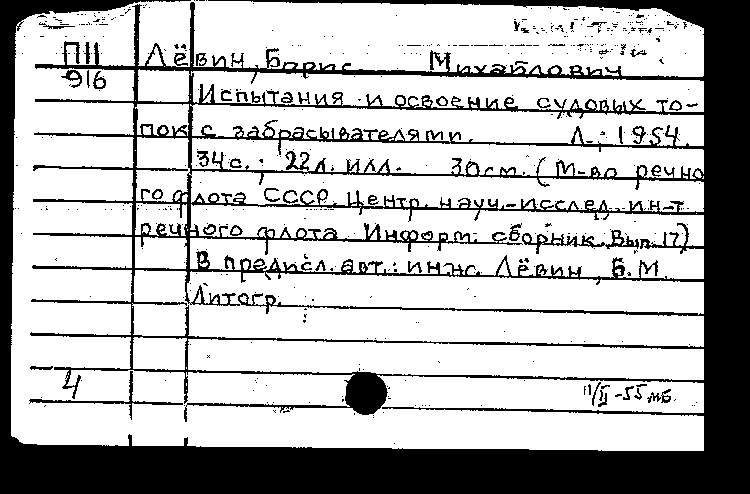 ПII Лёвин, Барис Михайлович
916
Испытания и освоение судовых то-
пок с забрасывателями. Л.; 1954.
34с.; 22л. илл. 30см. (М-во речно
го флота СССР. Центр. науч.-исслед. ин-т
речного флота. Информ. сборник. Вып. 17)
В предисл. авт.: инж. Лёвин, Б.М.
Литогр.
4
11/II-55 мб.